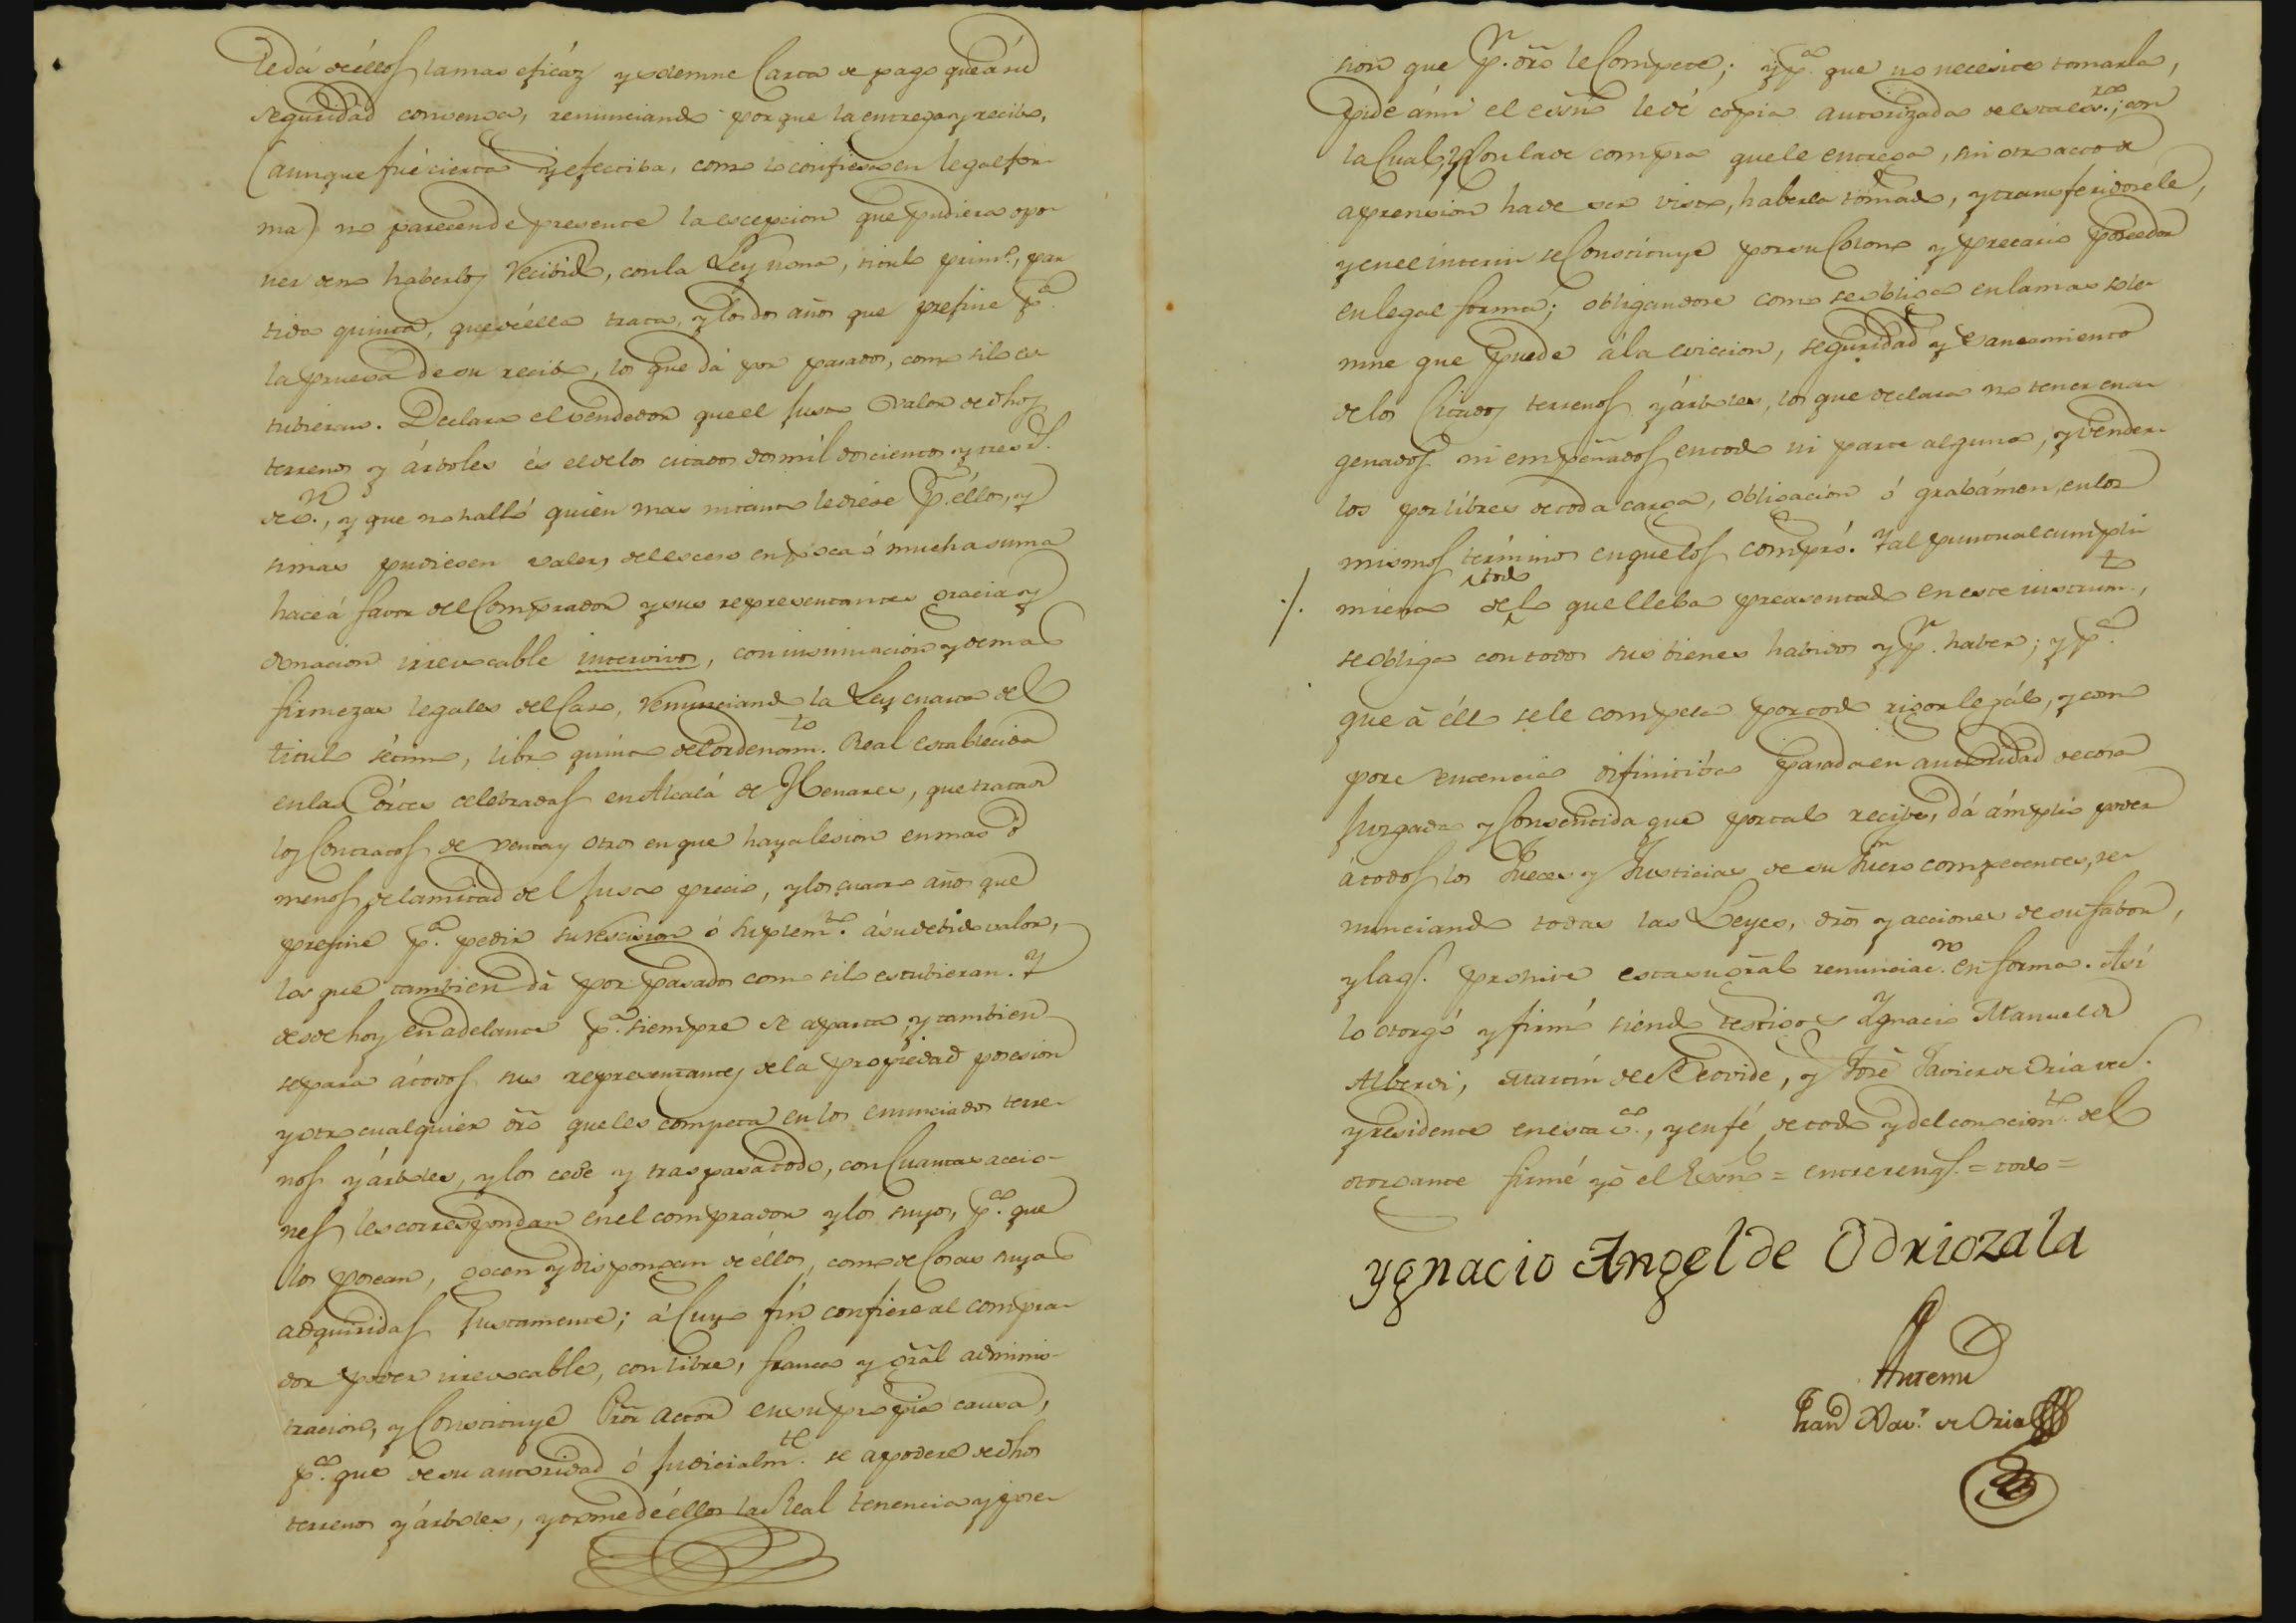 le dá de éllos la mas eficáz y solemne Carta de pago que á su
seguridad convenga, renunciando porque la entrega y recibo,
(aunque fué cierta y efectiba, como lo confiesa en legal for-
ma) no parecen de presente la escepcion que pudiera opo-
ner de no haberlos recibido, con la Ley nona, titulo prim.º, par
tida quinta, que de élla trata, y los dos años que prefine p.ª
la prueba de su recibo, los que dá por pasados, como si lo es
tubieran. Declara el vendedor que el justo valor de dhos
terrenos y árboles és el de los citados dos mil doscientos y tres r.s
de v.n, y que no halló quien mas ni tanto le diése p.r éllos, y
si mas pudiesen valer, del esceso en poca ó mucha suma
hace á favor del Comprador y sus representantes gracia y
donacion irrevocable intervivos, con insinuacion y demas
firmezas legales del Caso, renunciando la Ley cuarta del
titulo sétimo, libro quinto del ordenam.to Real establecida
en las Córtes celebradas en Alcalá de Henares, que trata de
los Contratos de venta y otros en que haya lesion en mas ó
menos de la mitad del justo precio, y los cuatro años que
prefine p.ª pedir su rescision ó suplem.to á su debido valor,
los que tambien dá por pasados como si lo estubieran. Y
desde hoy en adelante p.ª siempre se aparta, y tambien
separa á todos sus representantes de la propiedad posesion
y otro cualquier dro que les competa en los enunciados terre-
nos y árboles, y los cede y traspasa todo, con Cuantas accio-
nes les correspondan en el comprador y los suyos, p.ª que
los posean, gocen y dispongan de éllos, como de Cosas suyas
adquiridas justamente; á Cuyo fin confiere al compra-
dor poder irrevocable, con libre, franca y gral adminis-
tracion, y Constituye Pror actor en su propia causa,
p.ª que de su autoridad ó judicialm.te se apodere de dhos
terrenos y árboles, y tome de éllos la Real tenencia y pose-
sion que p.r dro le Compete; y p.ª que no necesite tomarla,
pide á mi el essno le dé copia autorizada de esta es.ra; con
la Cual, y Con la de compra que le entrega, sin otro acto de
aprension ha de ser visto, haberla tomado, y transferidosele,
y en el interin se Constituye por su Colono y precario poseedor
en legal forma; obligandose como se obliga en la mas sole-
mne que puede á la eviccion, seguridad y saneamiento
de los Citados terrenos y árboles, los que declara no tener ena-
genados ni empeñados en todo ni parte alguna, y vender-
los por libres de toda carga, obligacion ó grabámen, en los
mismos términos en que los compró. Y al puntual cumpli-
./. miento de ^todo lo que lleba preasentado en este instrum.to,
se obliga con todos sus bienes habidos y p.r haber; y p.ª
que á éllo se le compela por todo rigor legál, y como
por sentencia difinitiba pasada en autoridad de cosa
juzgada y Consentida que por tal recibe, dá ámplio poder
á todos los Jueces y Justicias de su fuero competentes, re-
nunciando todas las Leyes, dros y acciones de su fabor,
y la q.e prohive esta su gral renunciac.on en forma. Asi
lo otorgó y firmó siendo testigos Ygnacio Manuel de
Alberdi, Martin de Eleovide, y José Javier de Oria vec.s
y residente en esta v.ª, y en fé de todo y del conocim.to del
otorgante firmé yo el Essno = entrereng.s = todo =
Ygnacio Angel de Odriozala
Antemi
Juan Xav.r de Oria